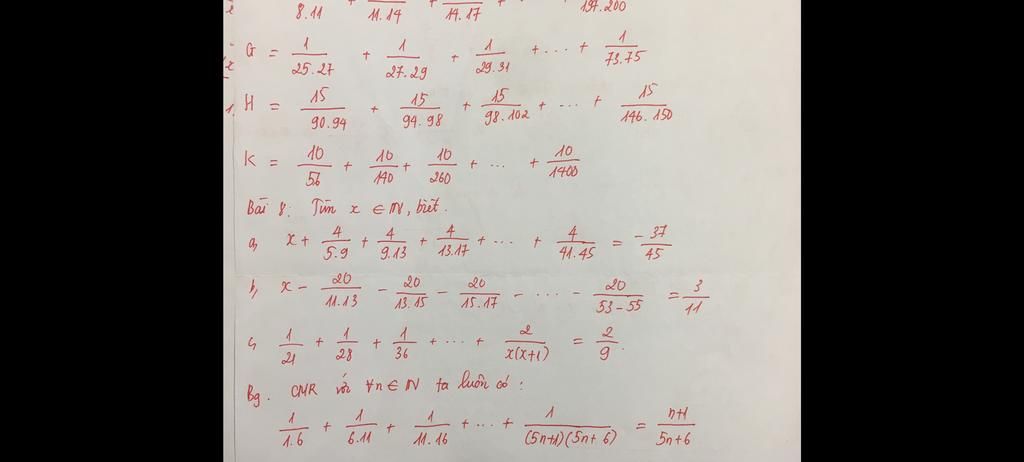 8.11 + 11.14 + 14.17 + 197.200
G = 1/25.27 + 1/27.29 + 1/29.31 + ... + 1/73.75
H = 15/90.94 + 15/94.98 + 15/98.102 + ... + 15/146.150
K = 10/56 + 10/140 + 10/260 + ... + 10/1400
Bài 8: Tìm x ∈ N, biết.
a, x + 4/5.9 + 4/9.13 + 4/13.17 + ... + 4/41.45 = -37/45
b, x - 20/11.13 - 20/13.15 - 20/15.17 - ... - 20/53-55 = 3/11
c, 1/21 + 1/28 + 1/36 + ... + 2/x(x+1) = 2/9.
B9. CMR với ∀n ∈ N ta luôn có:
1/1.6 + 1/6.11 + 1/11.16 + ... + 1/(5n+1)(5n+6) = n+1/5n+6